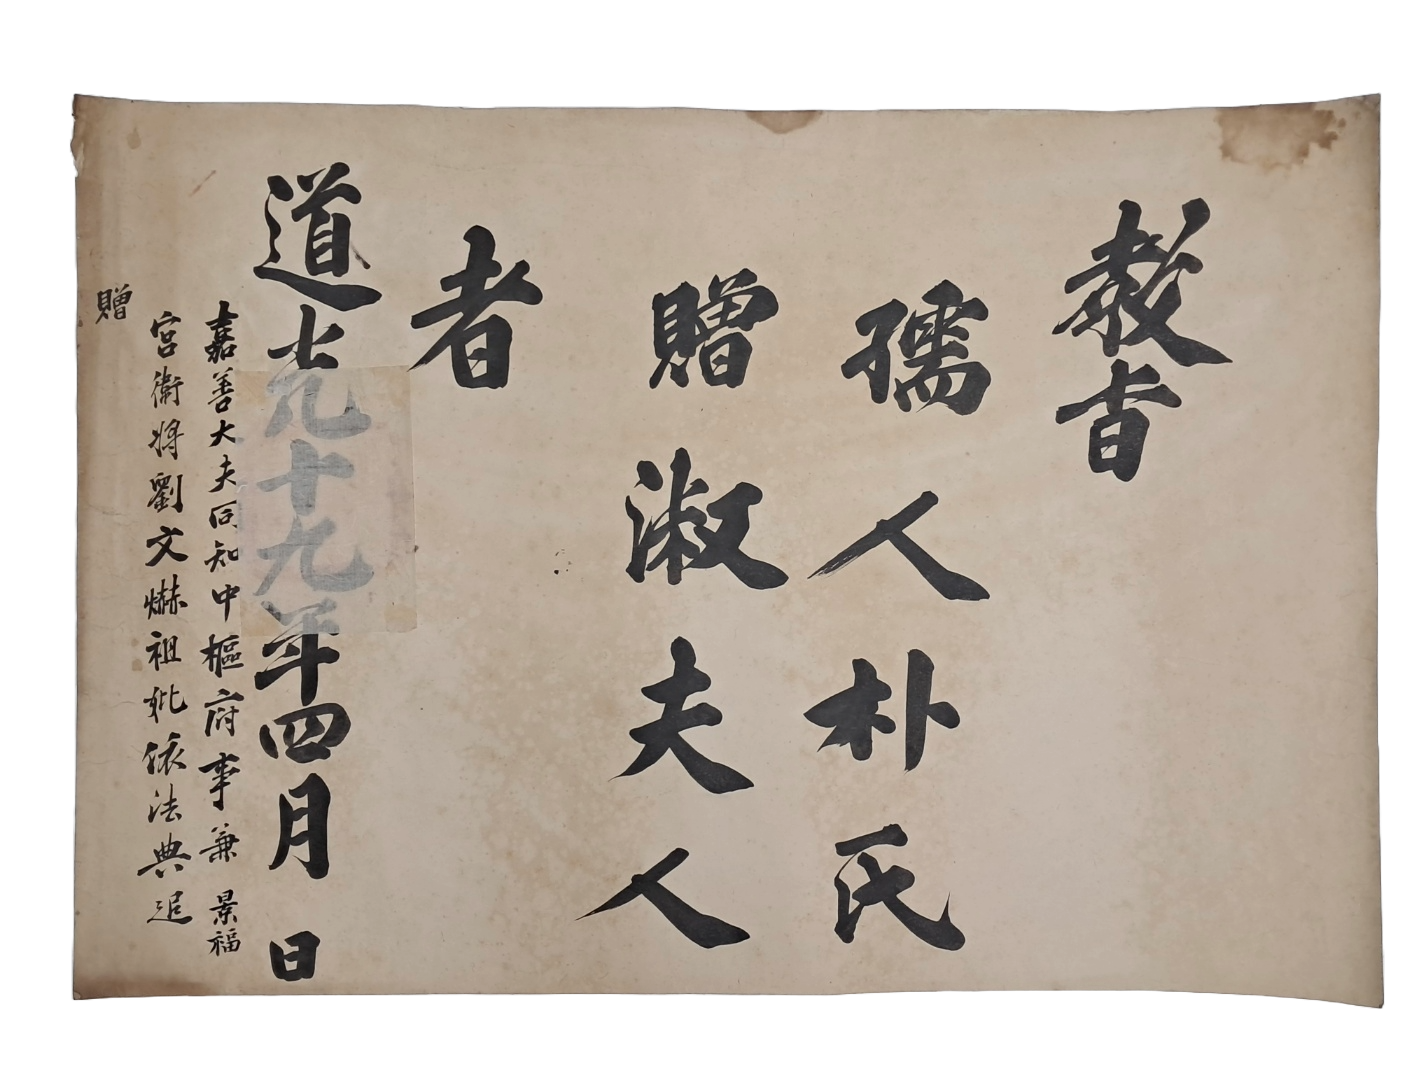 敎旨
孺人朴氏
贈淑夫人
者
道光十九年四月 日
嘉善大夫同知中樞府事兼 景福
宮衛將劉文爀祖妣依法典追
贈